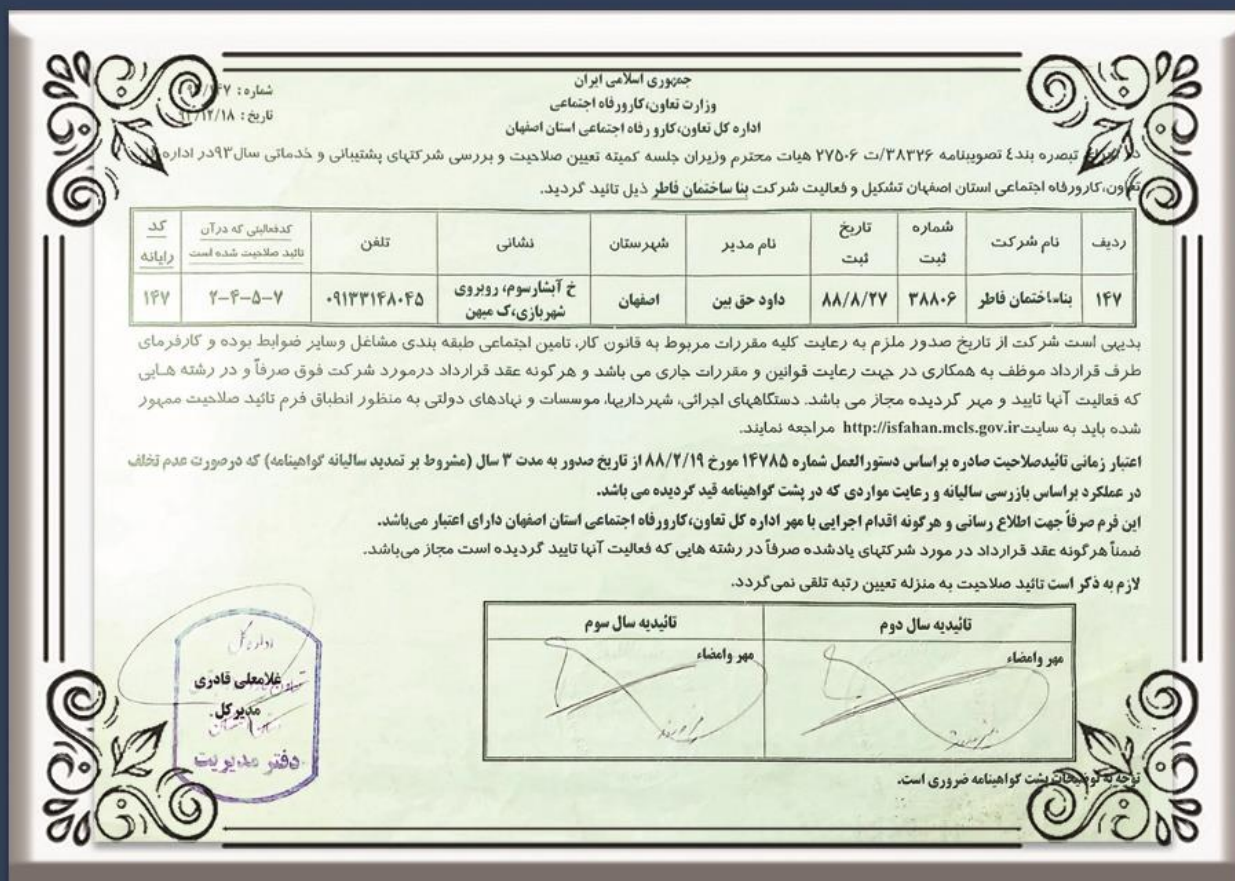 جمهوری اسلامی ایران
وزارت تعاون،کارورفاه اجتماعی
اداره کل تعاون،کارو رفاه اجتماعی استان اصفهان
شماره :
تاریخ :
تبصره بند٤ تصویبنامه ۳۸۳۲۶/ت ۲۷۵۰۶ هیات محترم وزیران جلسه کمیته تعیین صلاحیت و بررسی شرکتهای پشتیبانی و خدماتی سال۹۳در اداره
تعاون،کارورفاه اجتماعی استان اصفهان تشکیل و فعالیت شرکت بنا ساختمان فاطر ذیل تائید گردید.
ردیف نام شرکت شماره ثبت تاریخ ثبت نام مدیر شهرستان نشانی تلفن کدفعالیتی که درآن تائید صلاحیت شده است کد رایانه
۱۴۷ بناساختمان فاطر ۳۸۸۰۶ ۸۸/۸/۲۷ داود حق بین اصفهان خ آبشارسوم، روبروی شهربازی،ک میهن ۰۹۱۳۳۱۴۸۰۴۵ ۲-۴-۵-۷ ۱۴۷
بدیهی است شرکت از تاریخ صدور ملزم به رعایت کلیه مقررات مربوط به قانون کار، تامین اجتماعی طبقه بندی مشاغل وسایر ضوابط بوده و کارفرمای
طرف قرارداد موظف به همکاری در جهت رعایت قوانین و مقررات جاری می باشد و هرگونه عقد قرارداد درمورد شرکت فوق صرفاً و در رشته هـایی
که فعالیت آنها تایید و مهر گردیده مجاز می باشد. دستگاههای اجرائی، شهرداریها، موسسات و نهادهای دولتی به منظور انطباق فرم تائید صلاحیت ممهور
شده باید به سایت http://isfahan.mcls.gov.ir مراجعه نمایند.
اعتبار زمانی تائیدصلاحیت صادره براساس دستورالعمل شماره ۱۴۷۸۵ مورخ ۸۸/۲/۱۹ از تاریخ صدور به مدت ۳ سال (مشروط بر تمدید سالیانه گواهینامه) که درصورت عدم تخلف
در عملکرد براساس بازرسی سالیانه و رعایت مواردی که در پشت گواهینامه قید گردیده می باشد.
این فرم صرفاً جهت اطلاع رسانی و هرگونه اقدام اجرایی با مهر اداره کل تعاون،کارورفاه اجتماعی استان اصفهان دارای اعتبار می‌باشد.
ضمناً هرگونه عقد قرارداد در مورد شرکتهای یادشده صرفاً در رشته هایی که فعالیت آنها تایید گردیده است مجاز می‌باشد.
لازم به ذکر است تائید صلاحیت به منزله تعیین رتبه تلقی نمی‌گردد.
تائیدیه سال دوم تائیدیه سال سوم
مهر وامضاء مهر وامضاء
اداره کل
غلامعلی قادری
مدیرکل
دفتر مدیریت
توجه به توضیحات پشت گواهینامه ضروری است.